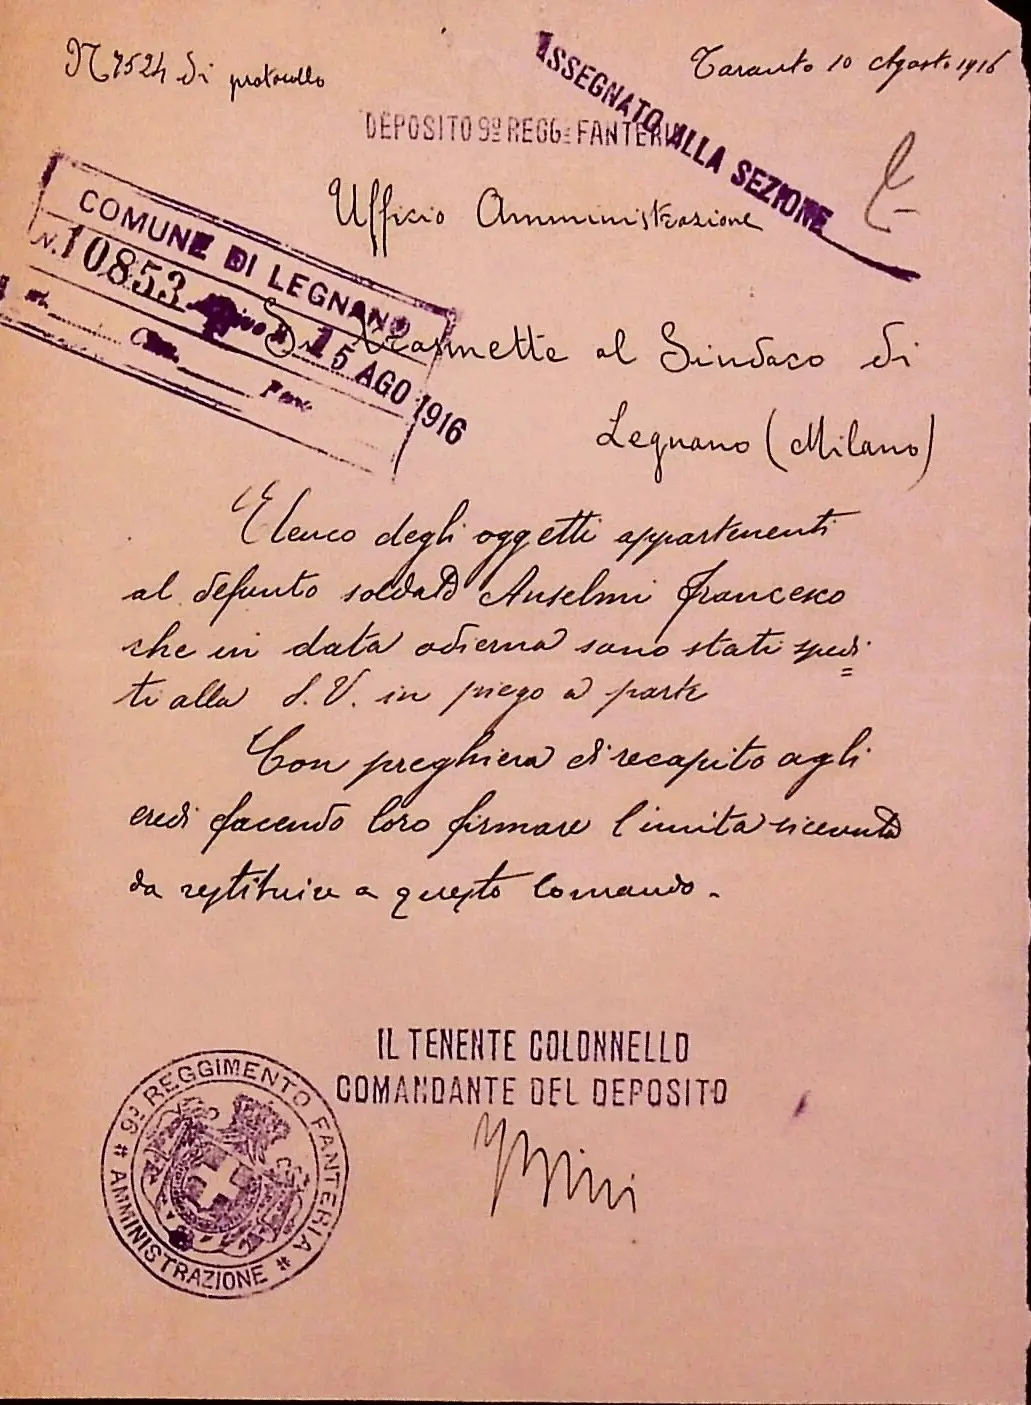 N 7524 di protocollo
Taranto 10 Agosto 1916
ASSEGNATO ALLA SEZIONE
DEPOSITO 9º REGG. FANTERIA
Ufficio Amministrazione
COMUNE DI LEGNANO
N. 10853
15 AGO 1916
Si trasmette al Sindaco di
Legnano (Milano)
Elenco degli oggetti appartenenti
al defunto soldato Anselmi Francesco
che in data odierna sono stati spedi=
ti alla S.V. in piego a parte
Con preghiera di recapito agli
eredi facendo loro firmare l'unita ricevuta
da restituire a questo Comando.
IL TENENTE COLONNELLO
COMANDANTE DEL DEPOSITO
9º REGGIMENTO FANTERIA
AMMINISTRAZIONE